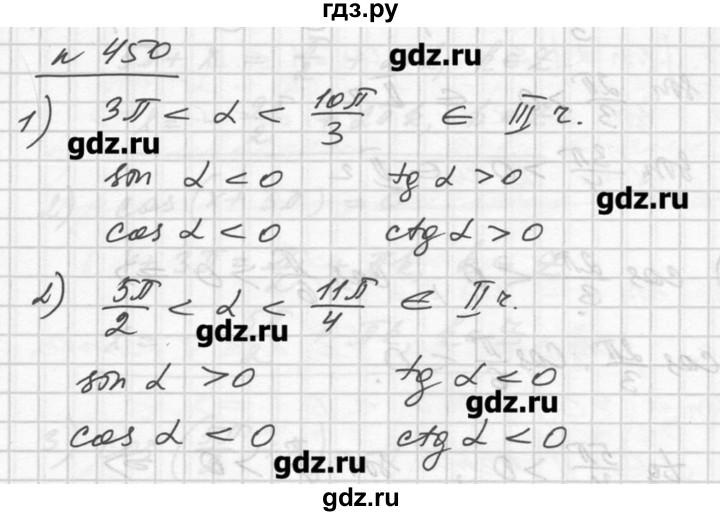 гдз.ру
n 450
gdz.ru
1) 3π < α < 10π/3 ∈ III ч.
gdz.ru
sin α < 0 tg α > 0
gdz.ru
cos α < 0 ctg α > 0
2) 5π/2 < α < 11π/4 ∈ II ч.
gdz.ru
sin α > 0 tg α < 0
gdz.ru
cos α < 0 ctg α < 0
gdz.ru
gdz.ru